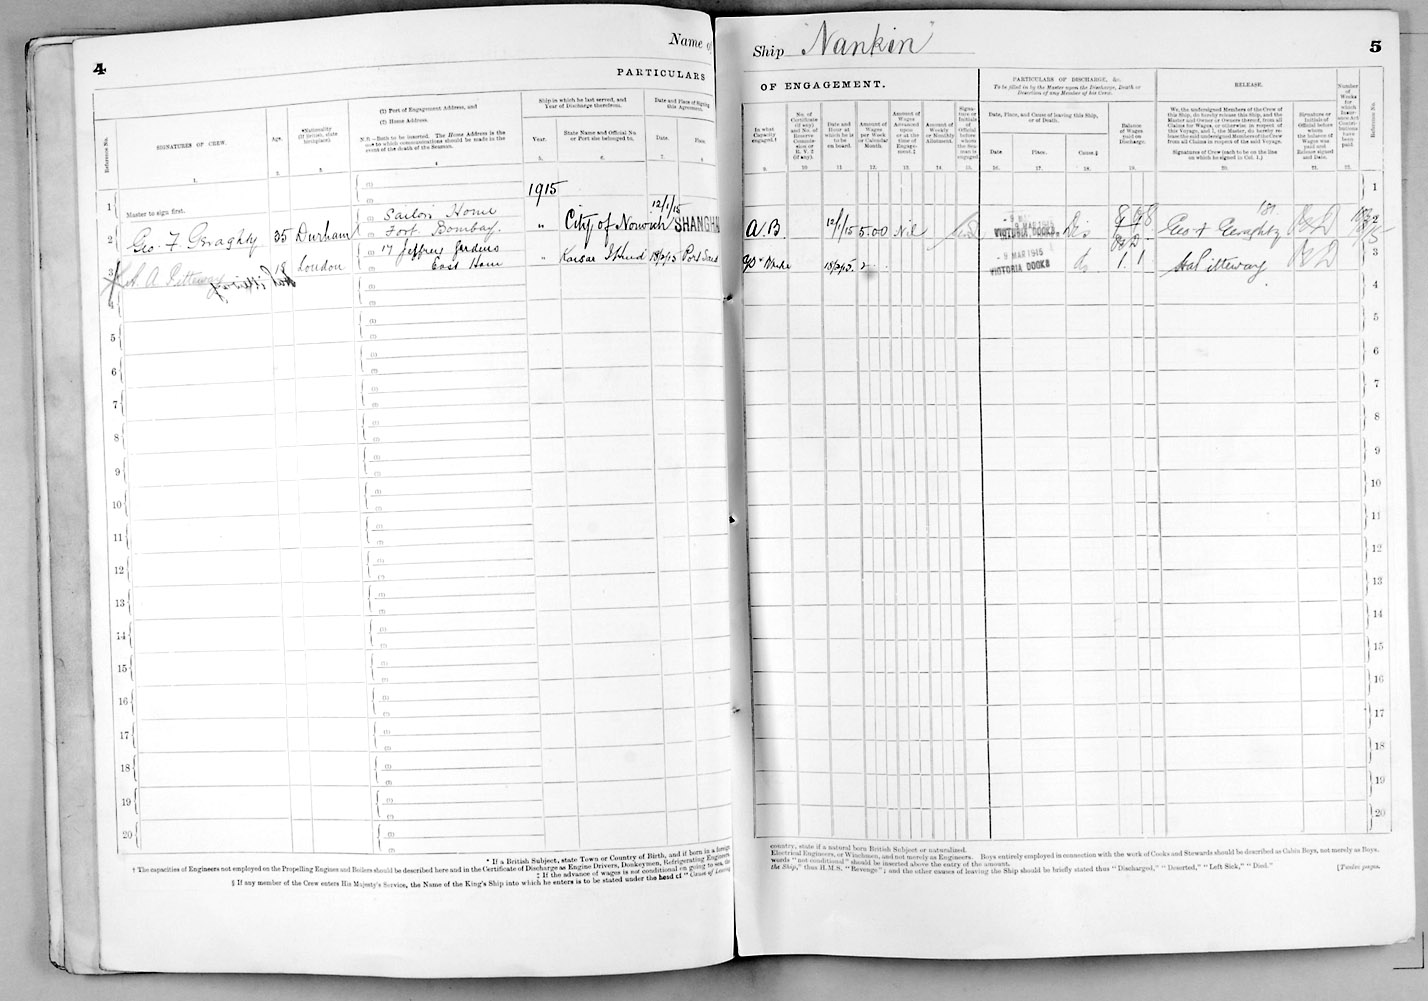 4
Name of
PARTICULARS
Reference No.
SIGNATURES OF CREW.
Age.
*Nationality
(If British, state
birthplace).
(1) Port of Engagement Address, and
(2) Home Address.
N.B.—Both to be inserted. The Home Address is the
one to which communications should be made in the
event of the death of the Seaman.
Ship in which he last served, and
Year of Discharge therefrom.
Year.
State Name and Official No.
or Port she belonged to.
Date and Place of Signing
this Agreement.
Date.
Place.
1. 2. 3. 4 5. 6. 7. 8
1 Master to sign first. 1915
2 Geo. F Geraghty 35 Durham Sailors Home Fort Bombay. " City of Norwich 12/1/15 SHANGHA
3 H. A. Pitteway 18 London 17 Jeffrey Gardens East Ham " Kaisar I Hind 18/2/15 Port Said
4
5
6
7
8
9
10
11
12
13
14
15
16
17
18
19
20
* If a British Subject, state Town or Country of Birth, and if born in a foreign
† The capacities of Engineers not employed on the Propelling Engines and Boilers should be described here and in the Certificate of Discharge as Engine Drivers, Donkeymen, Refrigerating Engineers
‡ If the advance of wages is not conditional on going to sea, the
§ If any member of the Crew enters His Majesty's Service, the Name of the King's Ship into which he enters is to be stated under the head of "Cause of Leaving
Ship "Nankin"
5
OF ENGAGEMENT.
PARTICULARS OF DISCHARGE, &c.
To be filled in by the Master upon the Discharge, Death or
Desertion of any Member of his Crew.
RELEASE.
In what
Capacity
engaged.†
No. of
Certificate
(if any)
and No. of
Reserve
Commis-
sion or
R. V. 2
(if any).
Date and
Hour at
which he is
to be
on board.
Amount of
Wages
per Week
or Calendar
Month.
Amount of
Wages
Advanced
upon
or at the
time of
Engage-
ment.‡
Amount of
Weekly
or Monthly
Allotment.
Signa-
ture or
Initials
of
Official
before
whom
the Sea-
man is
engaged.
Date, Place, and Cause of leaving this Ship,
or of Death.
Date
Place.
Cause.§
Balance
of Wages
paid on
Discharge.
We, the undersigned Members of the Crew of
this Ship, do hereby release this Ship, and the
Master and Owner or Owners thereof, from all
Claims for Wages, or otherwise, in respect of
this Voyage, and I, the Master, do hereby re-
lease the said undersigned Members of the Crew
from all Claims in respect of the said Voyage.
Signatures of Crew (each to be on the line
on which he signed in Col. 1.)
Signature or
Initials of
Official before
whom
the balance of
Wages was
paid and
Release signed
and Date.
Number
of
Weeks
for
which
Insur-
ance Act
Contri-
butions
have
been
paid.
Reference No.
9. 10 11 12. 13. 14 15. 16. 17. 18. 19. 20. 21. 22.
1
A.B 12/1/15 5.00 Nil - 9 MAR 1915 VICTORIA DOCKS. Dis Geo F Geraghty 2
18/2/15 - 9 MAR 1915 VICTORIA DOCKS Ds 1. 1 H A Pitteway 3
4
5
6
7
8
9
10
11
12
13
14
15
16
17
18
19
20
country, state if a natural born British Subject or naturalized.
Electrical Engineers, or Winchmen, and not merely as Engineers. Boys entirely employed in connection with the work of Cooks and Stewards should be described as Cabin Boys, not merely as Boys.
words "not conditional" should be inserted above the entry of the amount.
the Ship," thus H.M.S. "Revenge"; and the other causes of leaving the Ship should be briefly stated thus "Discharged," "Deserted," "Left Sick," "Died."
[Twelve pages.